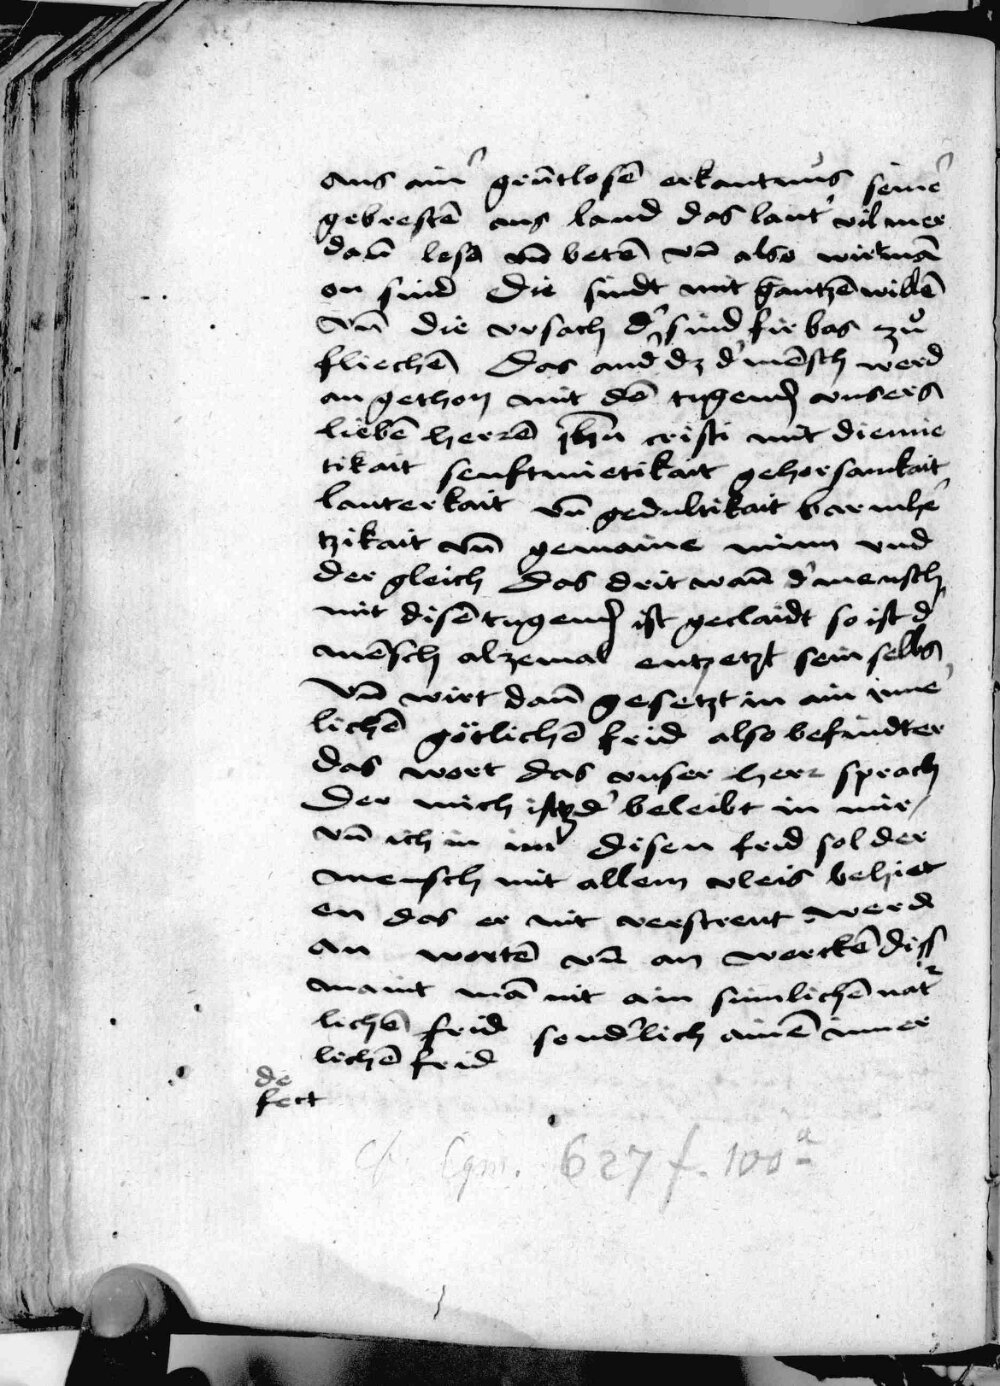 aus ain' grūtlosē erkantnus seine'
gebrestē aus land das laut' vil mer
dañ lesē vñ betē vñ also wirt mā
on sind Die sindt mit gantzē willē
vñ die vrsach d' sind fir bas zů
fliechē Das and' dz d' mēsch werd
an gethon mit dē tugend vnsers
liebē herrē ihū cristi mit diemie
tikait senftmietikait gehorsamkait
lauterkait vñ gedultikait barmhe'
tzikait vñ gemaine minn vnd
der gleich Das drit wañ d' mensch
mit disē tugend ist geclaidt so ist d'
mēsch alzemal entzetzt sein selbs
Vñ wirt dañ gesetzt in ain inne'
lichē götlichē frid also befindt er
das wort das vnser herr sprach
Der mich ist d' beleibt in mir
vñ ich in im disen frid sol der
mensch mit allem vleis behiet
en das er nit verstreut werd
an wortē vñ an werckē diss
maint mā nit ain sinlichē nat'
lichē frid sond'lich ainē inner
lichē frid
de
fect
cf. Cgm. 627 f. 100ᵃ